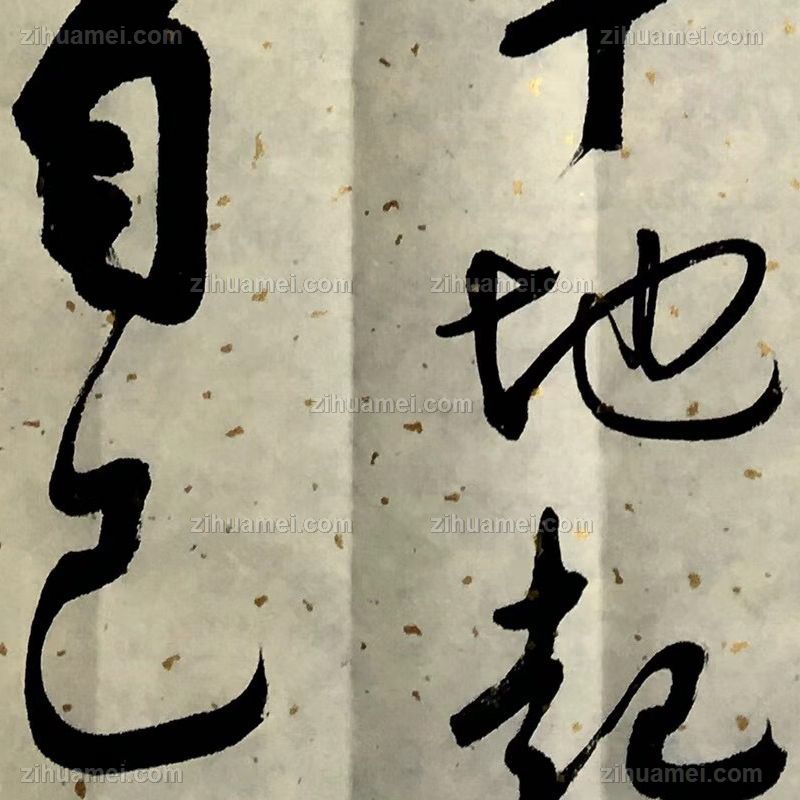 地起
自己
zihuamei.com
zihuamei.com
zihuamei.com
zihuamei.com
zihuamei.com
zihuamei.com
zihuamei.com
zihuamei.com
zihuamei.com